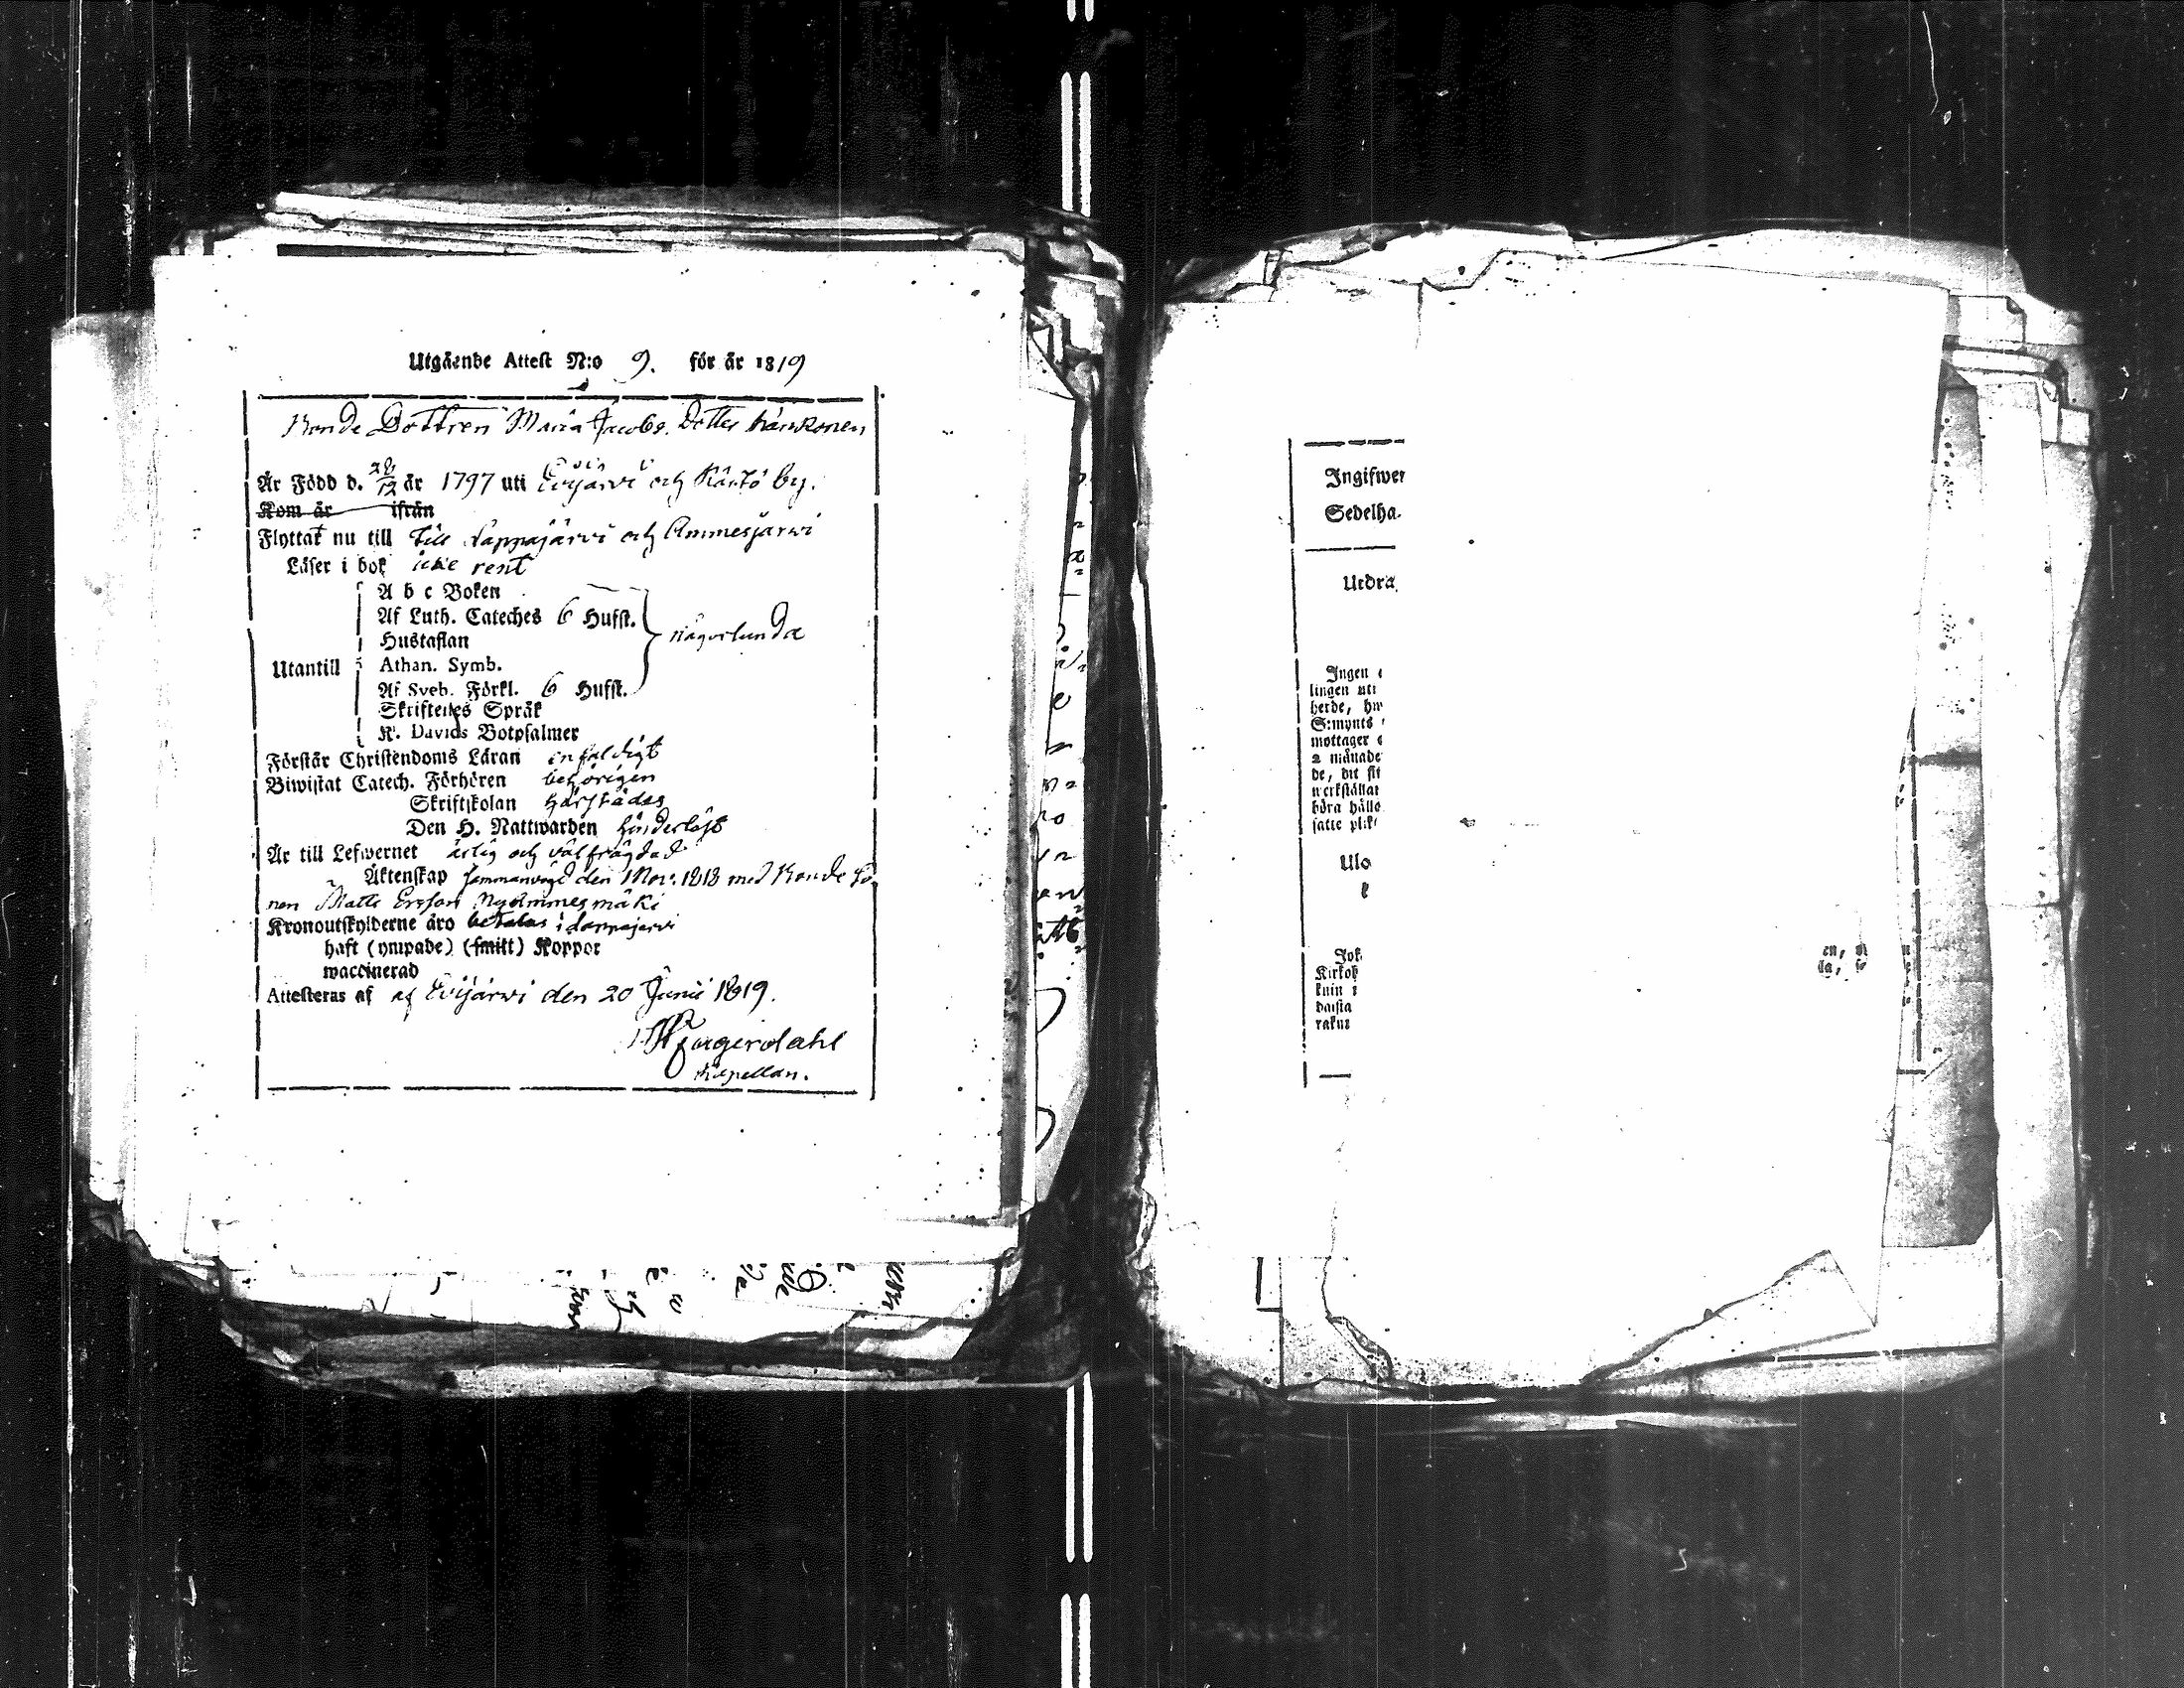 Utgående Attest N:o 9. för år 1819
Bonde Dottren Maria Jacobs. Dotter
Är Född d. 28/12 år 1797 uti Evijärvi och by.
Kom år ifrån
Flyttat nu till till Lappajärvi och Ammesjärwi
Läser i bok icke rent
A b c Boken
Af Luth. Cateches 6 Hufst.
Hustaflan
någorlunda
Utantill
Athan. Symb.
Af Sveb. Förkl. 6 Hufst.
Skriftenes Språk
K. Davids Botpsalmer
Förstår Christendoms Läran enfaldigt
Biwistat Catech. Förhören behörigen
Skriftskolan härstädes
Den H. Nattwarden hinderlöst
Är till Lefwernet ärlig och välfrägdad
Äktenskap sammanvigd den 1 Nov. 1818 med Bonde So
nen Matts Ersson
Kronoutskylderne äro betalas i Lappajervi
haft (ympade) (smitt) Koppor
waccinerad
Attesteras af af Evijärwi den 20 Junii 1819.
Kapellan.
Ingifwer
Sedelha
Utdra
Ingen
lingen uti
herde, hw
S:mynts
mottager
2 månade
de, dit fli
werkställat
böra hålle
satte plik
Ulo
Jok
Kirkoh
kuin
daista
rakut